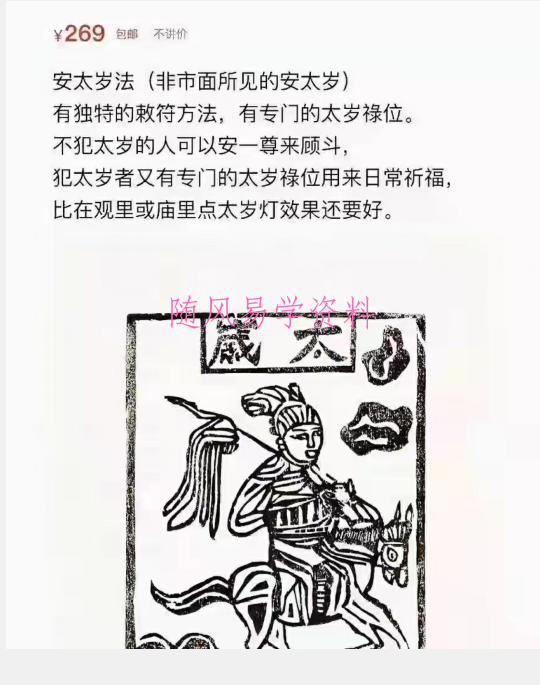 ¥269 包邮 不讲价
安太岁法（非市面所见的安太岁）
有独特的敕符方法，有专门的太岁禄位。
不犯太岁的人可以安一尊来顾斗，
犯太岁者又有专门的太岁禄位用来日常祈福，
比在观里或庙里点太岁灯效果还要好。
随风易学资料
歲太